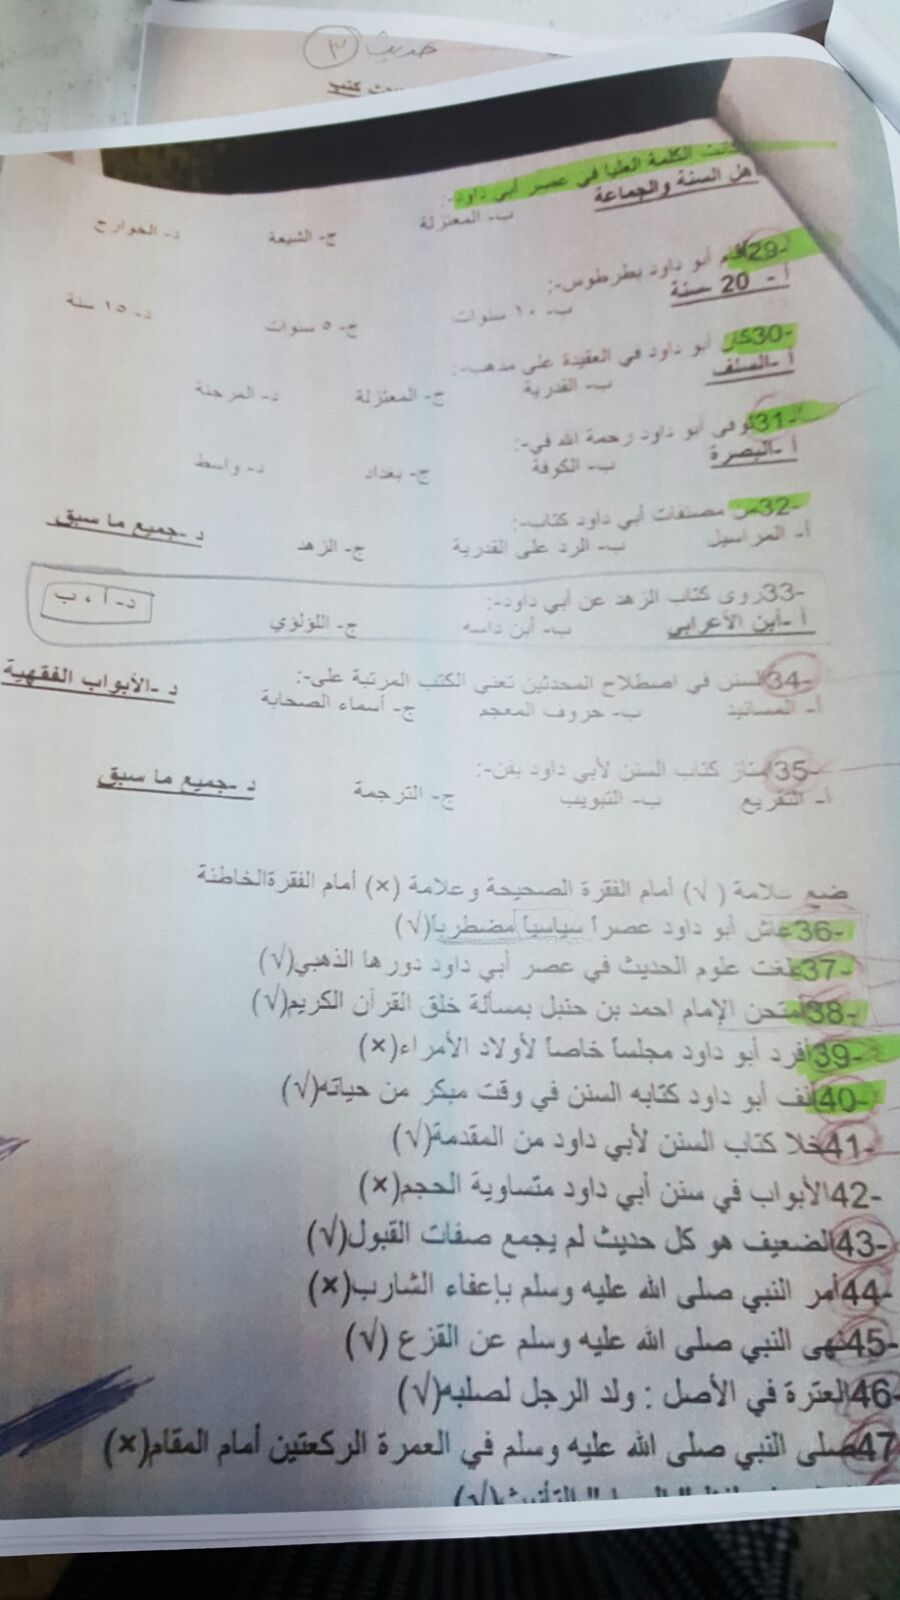 حديث ٣
كانت الكلمة العليا في عصر أبي داود:-
أهل السنة والجماعة ب- المعتزلة ج- الشيعة د- الخوارج
29- أقام أبو داود بطرطوس:-
أ- 20 سنة ب- ١٠ سنوات ج- ٥ سنوات د- ١٥ سنة
30- كان أبو داود في العقيدة على مذهب:-
أ- السلف ب- القدرية ج- المعتزلة د- المرجئة
31- توفي أبو داود رحمة الله في:-
أ- البصرة ب- الكوفة ج- بغداد د- واسط
32- من مصنفات أبي داود كتاب:-
أ- المراسيل ب- الرد على القدرية ج- الزهد د- جميع ما سبق
33- روى كتاب الزهد عن أبي داود:-
أ- أبن الأعرابي ب- أبن داسه ج- اللؤلؤي د- أ ، ب
34- السنن في اصطلاح المحدثين تعني الكتب المرتبة على:-
أ- المسانيد ب- حروف المعجم ج- أسماء الصحابة د- الأبواب الفقهية
35- امتاز كتاب السنن لأبي داود بفن:-
أ- التفريع ب- التبويب ج- الترجمة د- جميع ما سبق
ضع علامة (√) أمام الفقرة الصحيحة وعلامة (×) أمام الفقرة الخاطئة
36- عاش أبو داود عصراً سياسياً مضطرباً(√)
37- بلغت علوم الحديث في عصر أبي داود دورها الذهبي(√)
38- امتحن الإمام احمد بن حنبل بمسألة خلق القرآن الكريم(√)
39- أفرد أبو داود مجلساً خاصاً لأولاد الأمراء(×)
40- ألف أبو داود كتابه السنن في وقت مبكر من حياته(√)
41- خلا كتاب السنن لأبي داود من المقدمة(√)
42- الأبواب في سنن أبي داود متساوية الحجم(×)
43- الضعيف هو كل حديث لم يجمع صفات القبول(√)
44- أمر النبي صلى الله عليه وسلم بإعفاء الشارب(×)
45- نهى النبي صلى الله عليه وسلم عن القزع (√)
46- العترة في الأصل : ولد الرجل لصلبه(√)
47- صلى النبي صلى الله عليه وسلم في العمرة الركعتين أمام المقام(×)